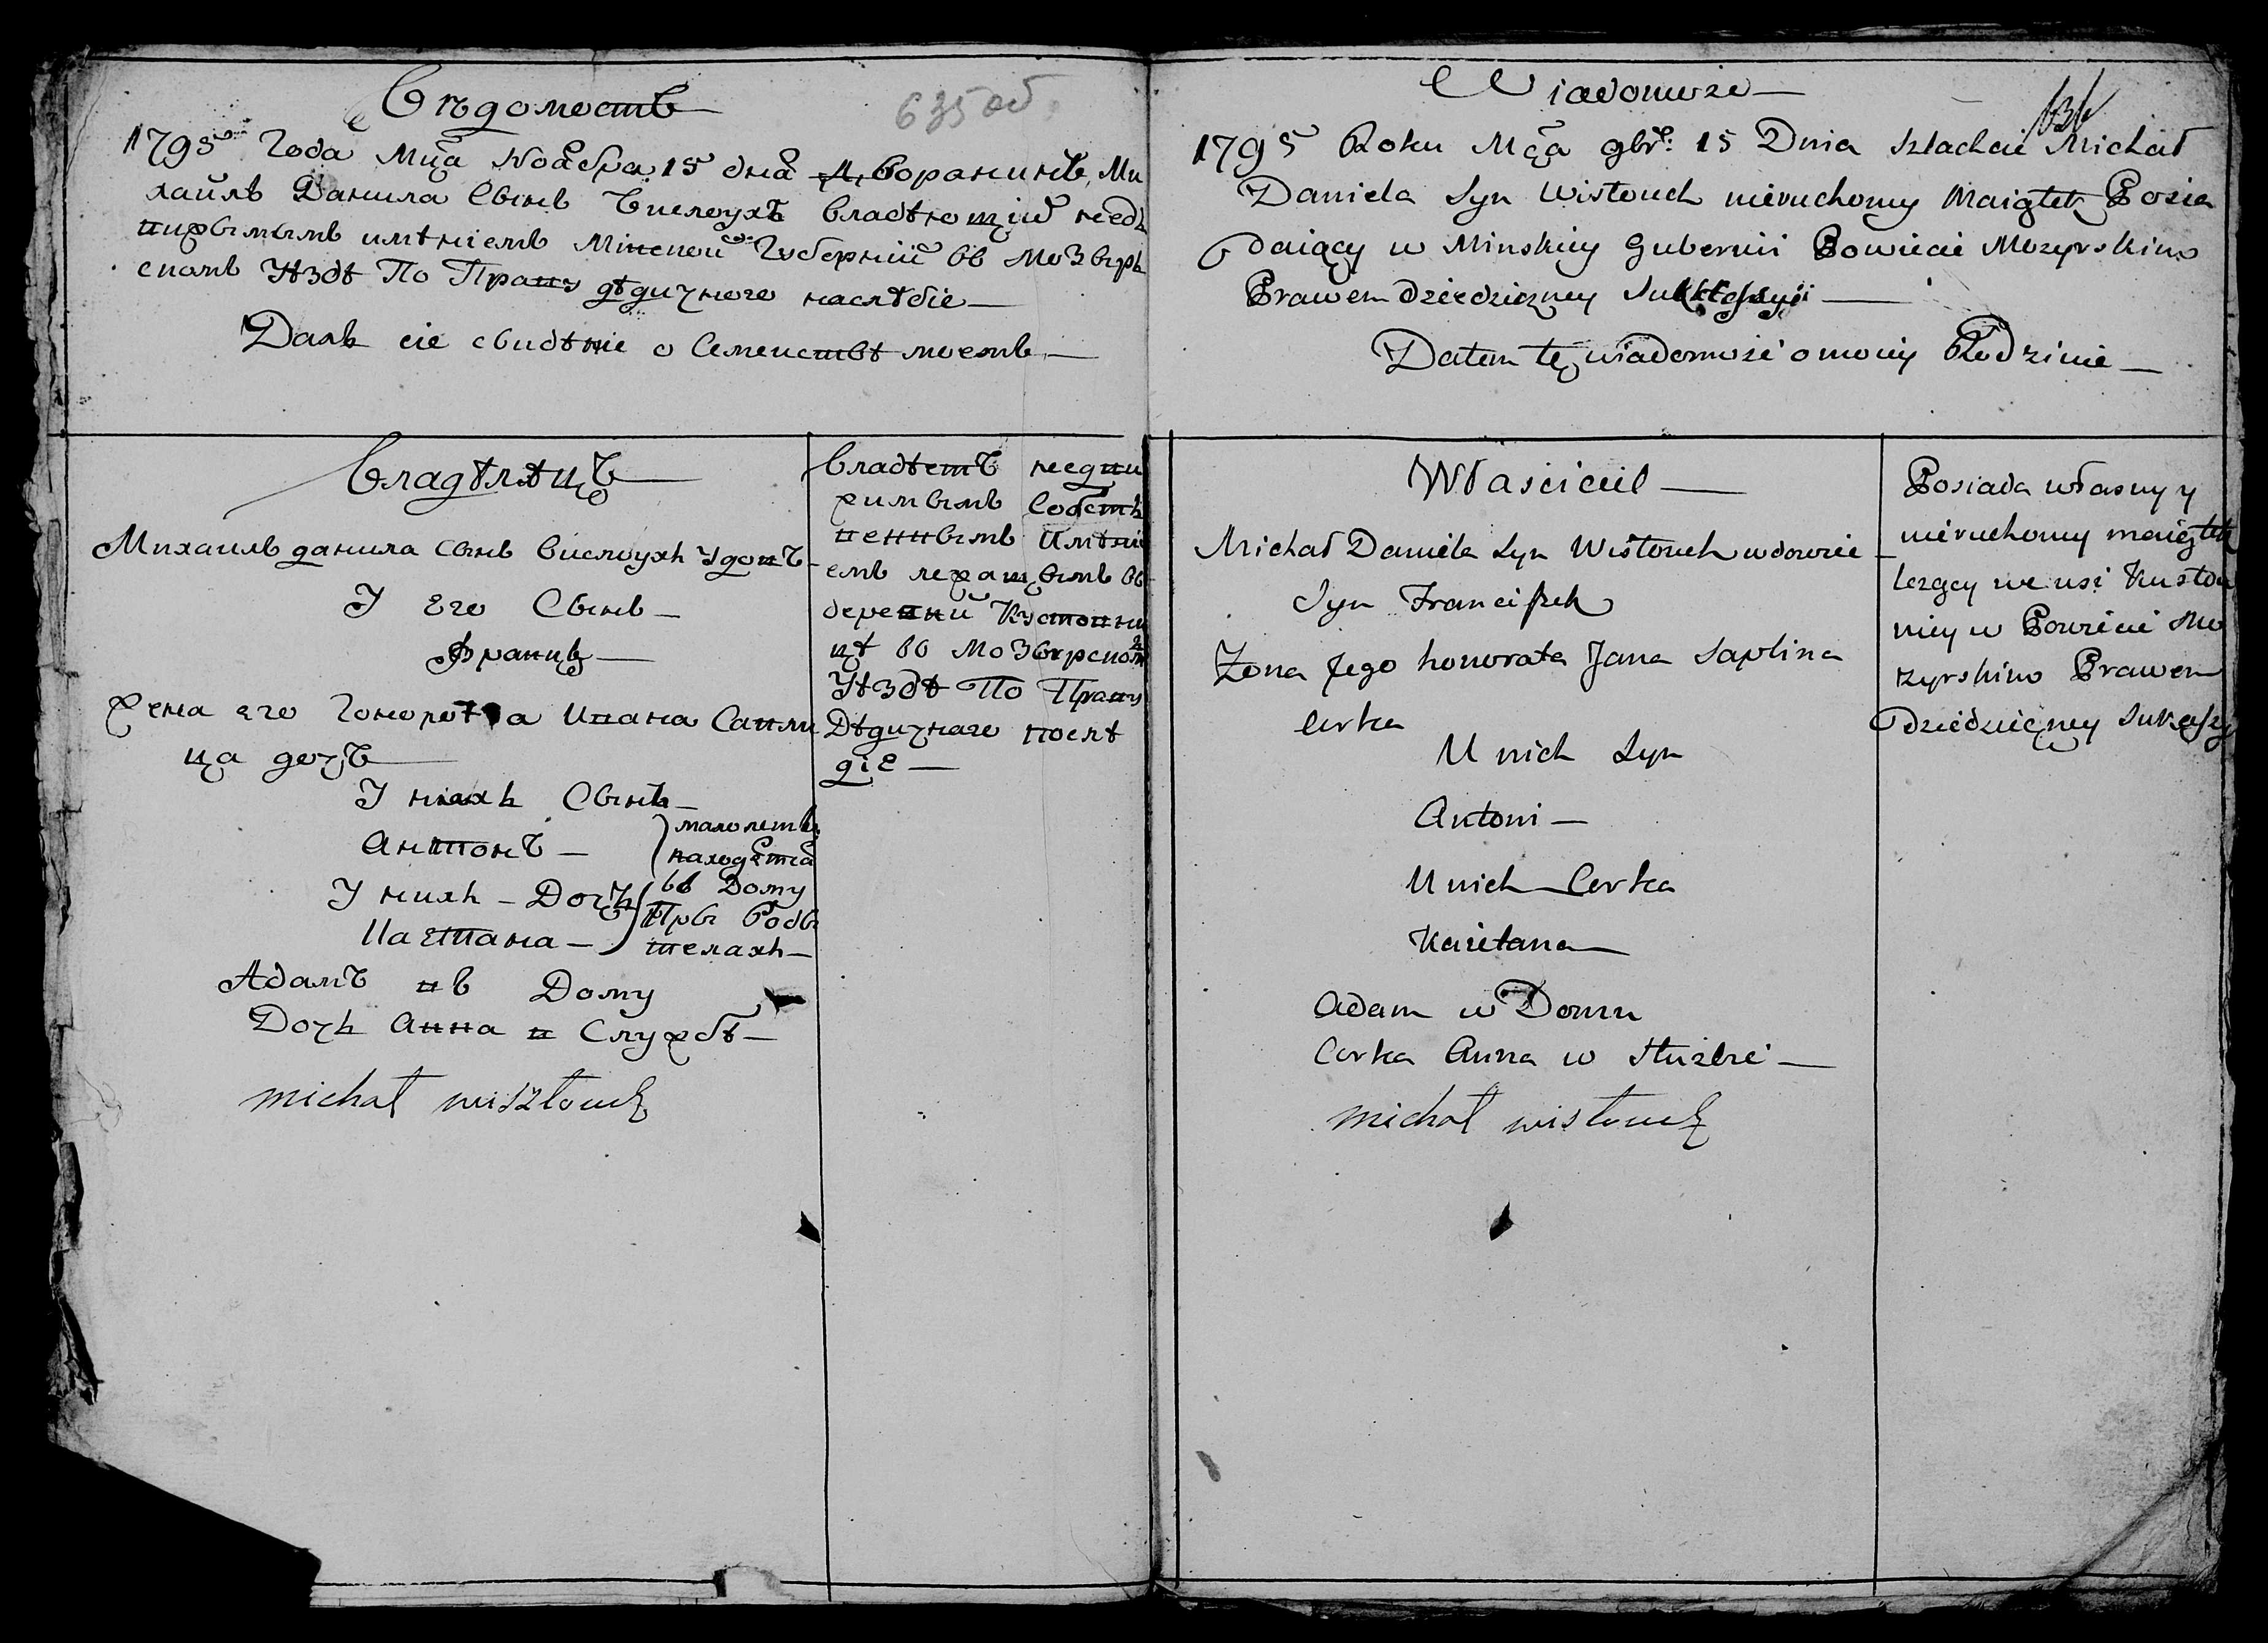 Вѣдомость
635 об.
1795 Года Мца Ноабра 15 дна Дворанинъ Ми
хайлъ Данила Сынъ Вислоухъ Владѣющій недъ
вижымымъ имѣніемъ Мінской Губерній въ Мозыръ
скомъ Уѣздѣ По Праву дѣдичного наслѣдіе —
Далъ сіе свидѣніе о Семействѣ моемъ —
Владѣлѣцъ
Михаилъ данила Сынъ Вислоухъ Удовъ
У Его Сынъ —
Францъ —
Жена Его Гонората Ивана Сапли
ца дочъ
У ниахъ Сынъ —
Антонъ —
У нихъ — Дочъ
Каетана —
малолеты
находятса
въ Дому
Пры Роды
телахъ —
Адамъ въ Дому
Дочъ Анна в Службѣ —
michał wiszłouch
Владѣетъ недви
жимымъ Собстъ
веннымъ Имѣні
емъ лежащымъ въ
деревни Кустовни
цѣ во Мозырском
Уѣздѣ По Праву
Дѣдичнаго послѣ
діе —
Wiadomość —
1795 Roku Mca 9br: 15 Dnia Szlachcic Michał
Daniela Syn Wisłouch nieruchomy Maiątek Posia
daiący w Minskiey Gubernii Powiecie Mozyrskim
Prawem dziedziczney
Datem tę wiadomość o moiey Rodzinie —
Właściciel —
Michał Daniela Syn Wisłouch wdowiec —
Syn Franciszek
Żona Jego honorata Jana Saplina
Corka
U nich Syn
Antoni —
U nich — Corka
Kaietana —
Adam w Domu
Corka Anna w Służbie —
michał wisłouch
Posiada własny y
nieruchomy maiątek
leżący we wsi Kustow
nicy w Powiecie Mo
zyrskim Prawem
dziedziczney Sukcessy